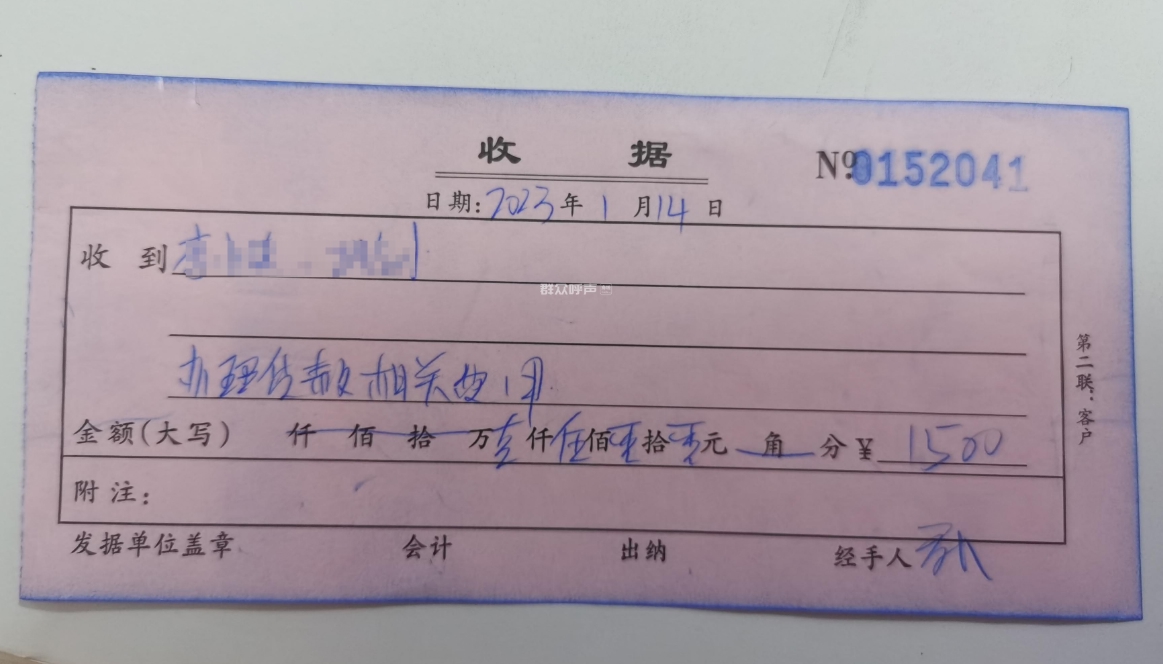 收 据
№0152041
日期:2023年1月14日
收 到
群众呼声
办理贷款相关费用
金额(大写) 仟 佰 拾 万壹仟伍佰零拾零元 角 分¥1500
附 注:
发据单位盖章 会计 出纳 经手人
第二联:客户